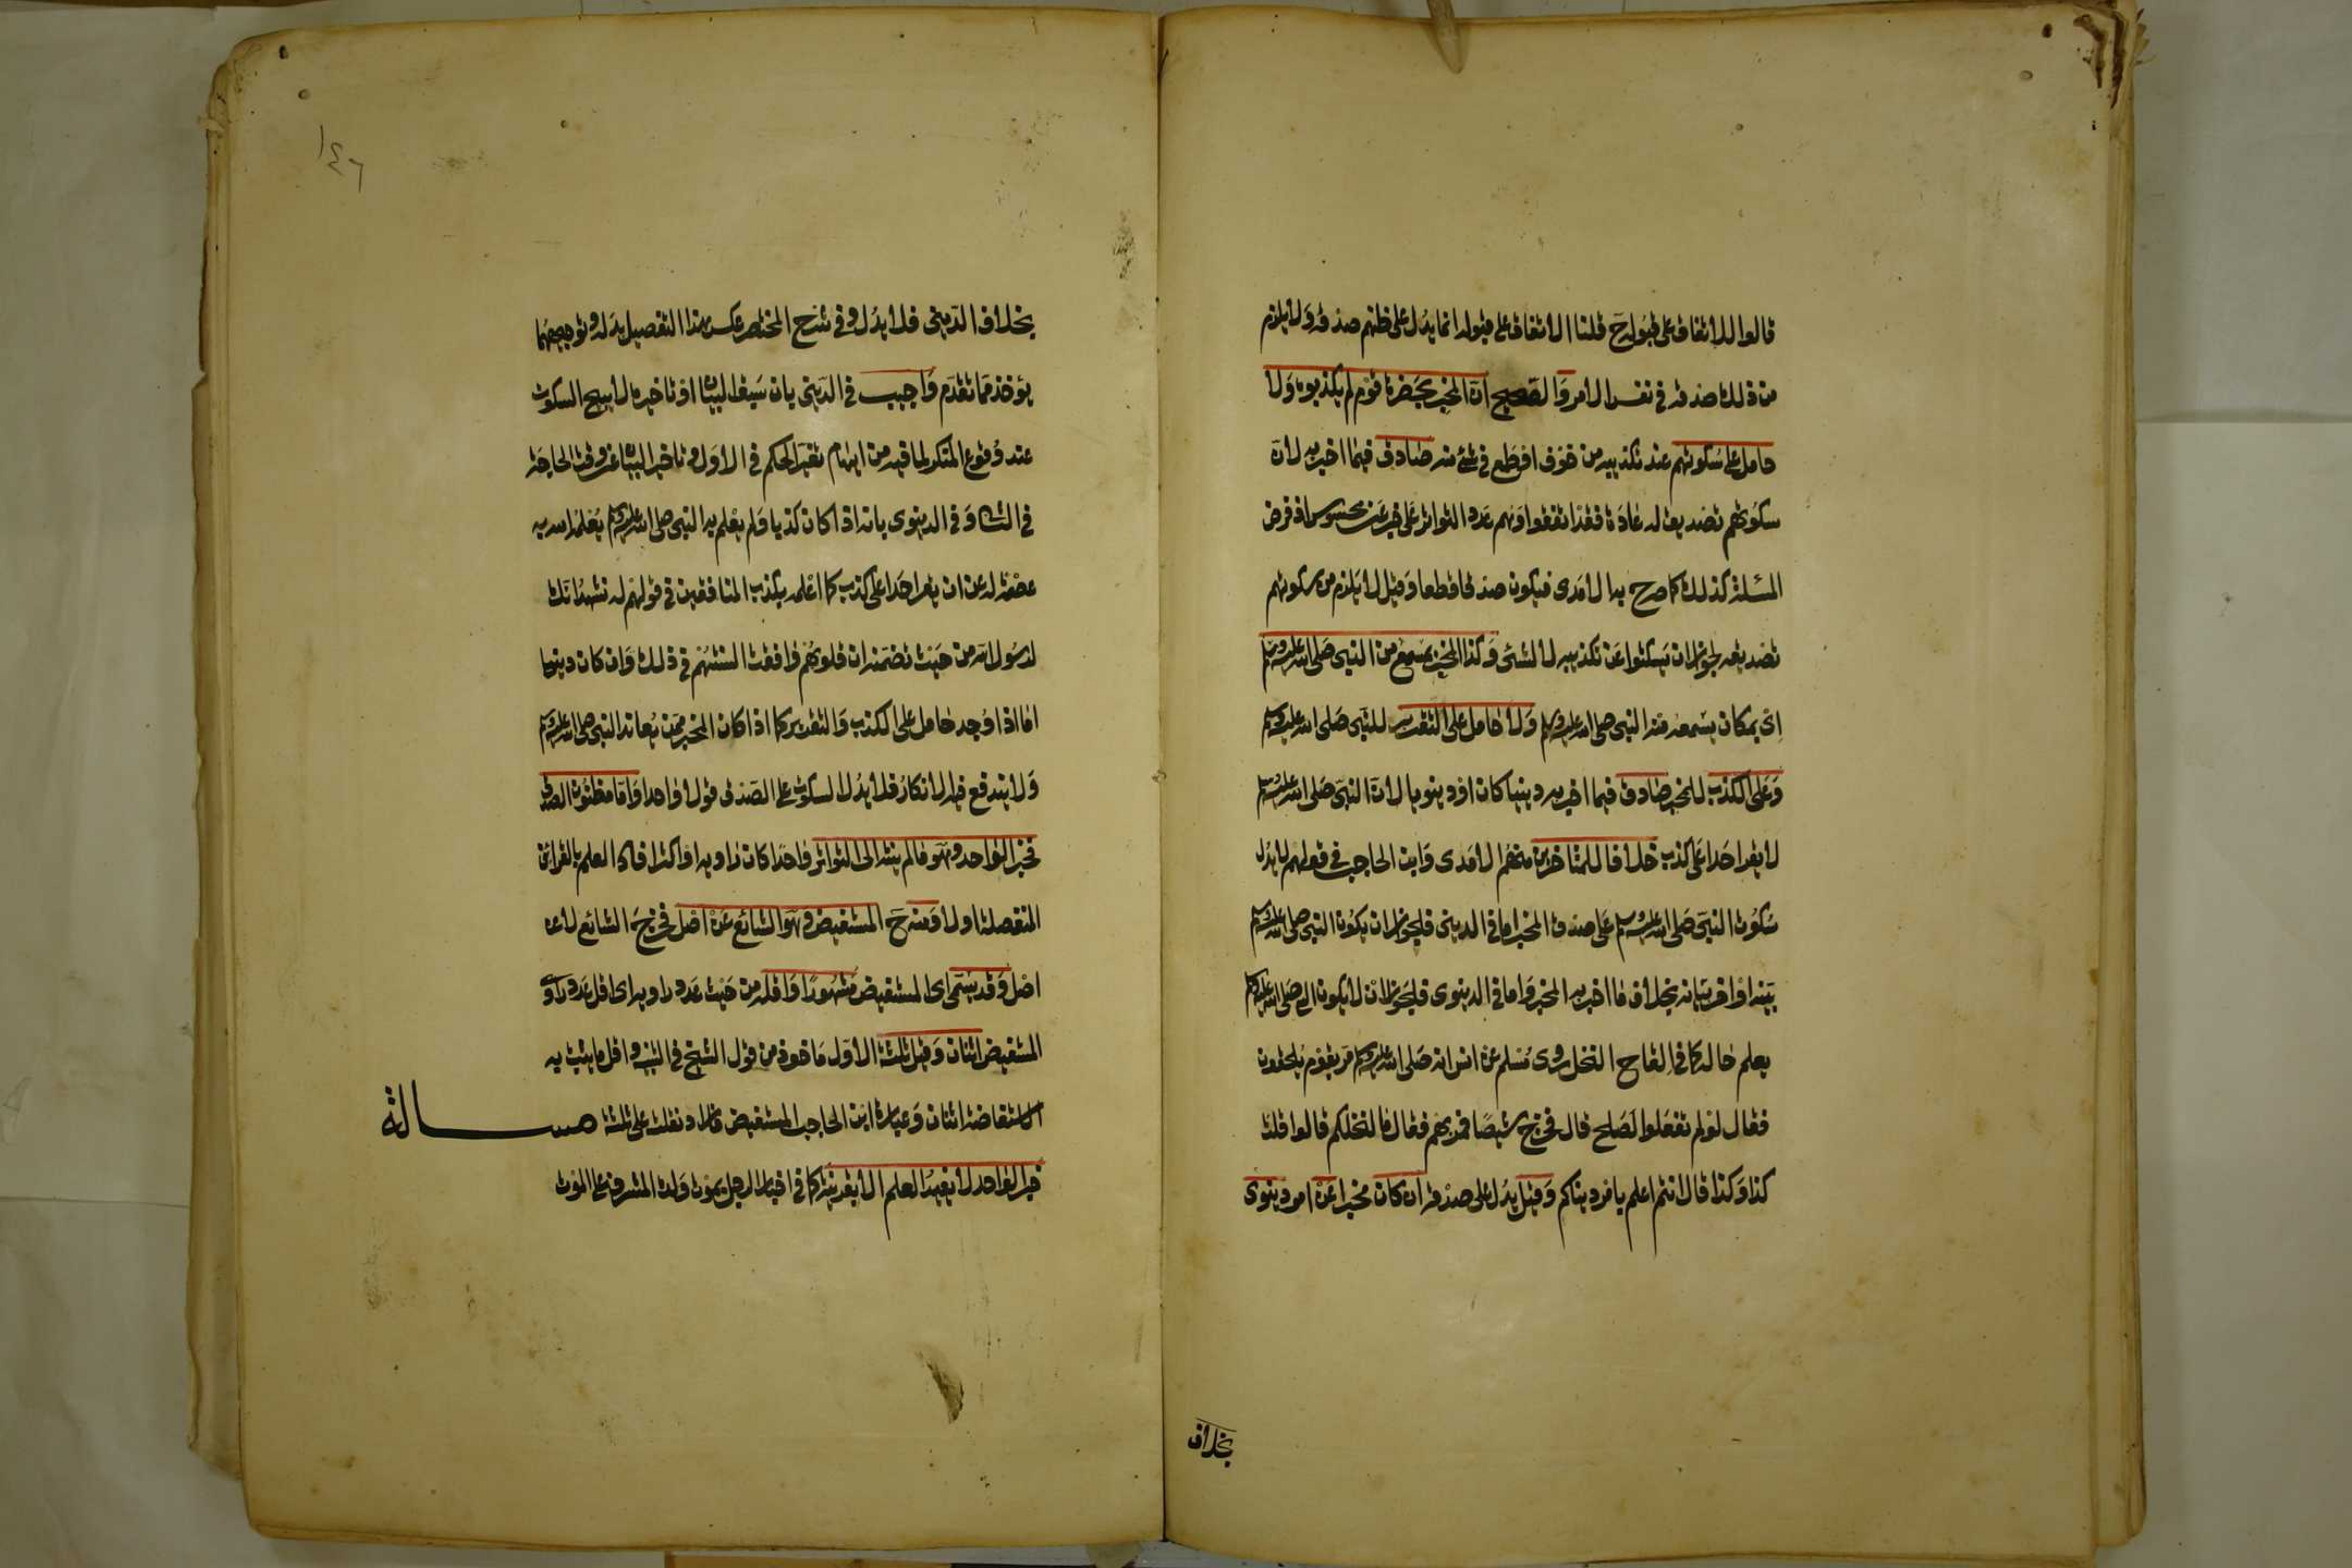 قالوا للاتفاق على قبوله ح قلنا الاتفاق على قبوله انما يدل على ظنهم صدقه ولا يلزم
من ذلك صدقه في نفس الامر والصحيح ان المخبر بحضرة قوم لم يكذبوه ولا
حامل على سكوتهم عند تكذيبه من خوف او طمع في شئ منه صادق فيما اخبر به لان
سكوتهم تصديق له عادة فقد اتفقوا وهم عدد التواتر على خبر عن محسوس اذ فرض
المسئلة كذلك كما صرح به الامدى فيكون صدقا قطعا وقيل لا يلزم من سكوتهم
تصديقه لجواز ان يسكتوا عن تكذيبه لا لشئ وكذا المخبر بمسمع من النبي صلى الله عليه وسلم
اى بمكان يسمعه منه النبي صلى الله عليه وسلم ولا حامل على التقرير للنبي صلى الله عليه وسلم
وعلى الكذب للمخبر صادق فيما اخبر به دينيا كان او دينويا لان النبي صلى الله عليه وسلم
لا يقر احدا على كذب خلافا للمتاخرين منهم الامدى وابن الحاجب في قولهم لا يدل
سكوت النبي صلى الله عليه وسلم على صدق المخبر اما في الدينى فلجواز ان يكون النبي صلى الله عليه وسلم
بينه او اخر بيانه بخلاف ما اخبر به المخبر واما في الدينوى فلجواز ان لا يكون النبي صلى الله عليه وسلم
يعلم حاله كما في القاح النخل روى مسلم عن انس انه صلى الله عليه وسلم مر بقوم يلقحون
فقال لو لم تفعلوا لصلح قال فخرج شيصا فمر بهم فقال ما لنخلكم قالوا قلت
كذا وكذا قال انتم اعلم بامر دينياكم وقيل يدل على صدقه ان كان مخبرا عن امر دينوى
بخلاف
١٤٦
بخلاف الدينى فلا يدل وفي شرح المختصر عكس هذا التفصيل بدله وتوجيههما
يؤخذ مما تقدم واجيب في الدينى بان سبق البيان او تاخيره لا يبيح السكوت
عند وقوع المنكر لما فيه من ايهام تغير الحكم في الاول وتاخير البيان عن وقت الحاجة
في الثانى وفي الدينوى بانه اذا كان كذبا ولم يعلم به النبي صلى الله عليه وسلم يعلمه الله به
عصمة له عن ان يقر احدا على كذب كما اعلمه بكذب المنافقين في قولهم له نشهد انك
لرسول الله من حيث تضمنه ان قلوبهم وافقت السنتهم في ذلك وان كان دينيا
اما اذا وجد حامل على الكذب والتقرير كما اذا كان المخبر ممن يعاند النبي صلى الله عليه وسلم
ولا يندفع فيه الانكار فلا يدل السكوت على الصدق قولا واحدا واما مظنون الصدق
فخبر الواحد وهو ما لم ينته الى التواتر واحدا كان راويه او اكثر افاد العلم بالقرائن
المنفصلة اولا ومنه ح المستفيض وهو الشائع عن اصل فخرج الشائع لا عن
اصل وقد يسمى اى المستفيض مشهورا واقله من حيث عدد راويه اى اقل عدد راوى
المستفيض اثنان وقيل ثلثة الاول ماخوذ من قول الشيخ في التنبيه واقل ما يثبت به
الاستفاضة اثنان وعبارة ابن الحاجب المستفيض ما زاد نقلته على ثلثة مسـالة
خبر الواحد لا يفيد العلم الا بقرينة كما في اخبار الرجل بموت ولده المشرف على الموت